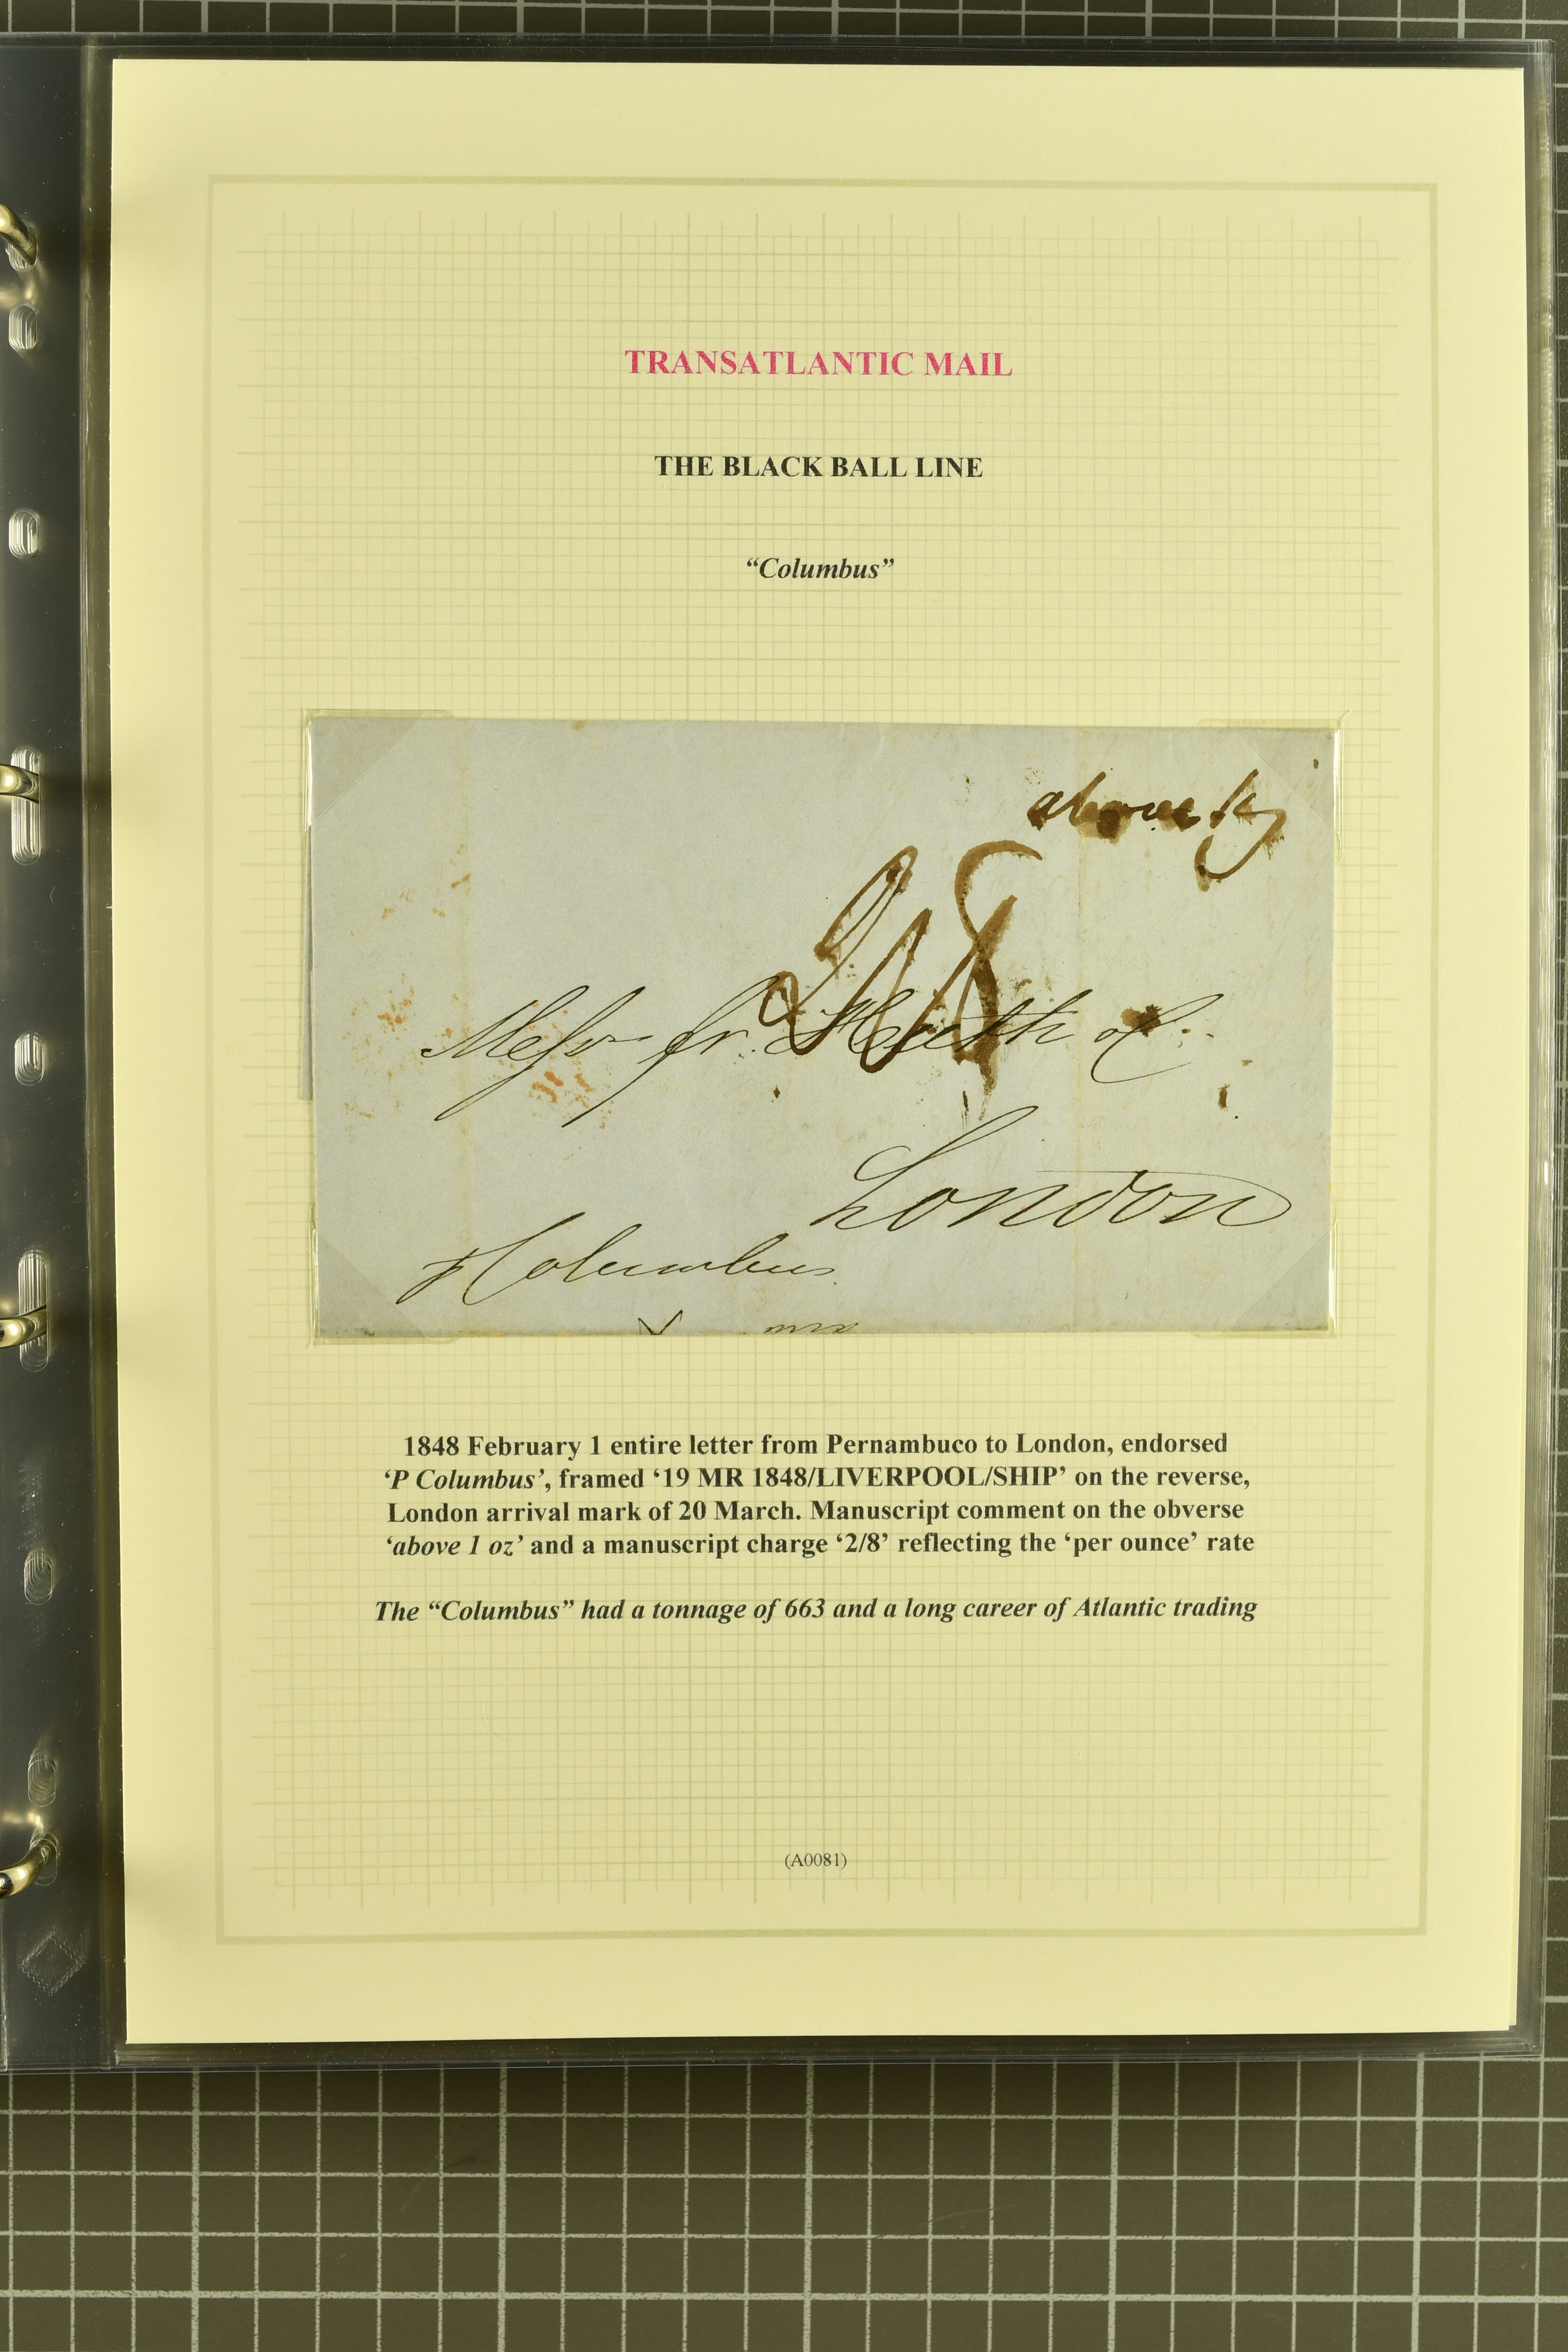 TRANSATLANTIC MAIL
THE BLACK BALL LINE
“Columbus”
above 1 oz
2/8
Messrs Fr. Huth & Co.
London
p Columbus
1848 February 1 entire letter from Pernambuco to London, endorsed
‘P Columbus’, framed ‘19 MR 1848/LIVERPOOL/SHIP’ on the reverse,
London arrival mark of 20 March. Manuscript comment on the obverse
‘above 1 oz’ and a manuscript charge ‘2/8’ reflecting the ‘per ounce’ rate
The “Columbus” had a tonnage of 663 and a long career of Atlantic trading
(A0081)